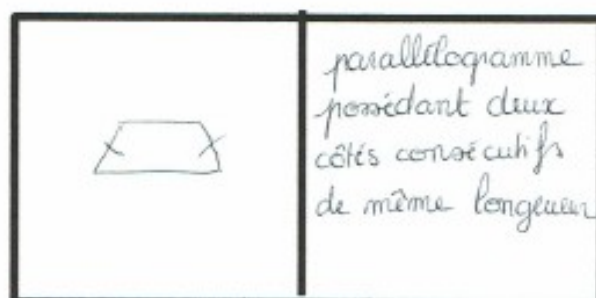 parallélogramme
possédant deux
côtés consécutifs
de même longueur